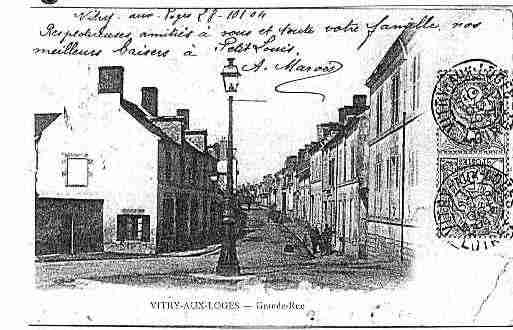 Vitry aux Loges 28-10-04
Respectueuses amitiés à vous et toute votre famille, nos
meilleurs baisers à Petit Louis.
A. Marois
VITRY-AUX-LOGES — Grande-Rue